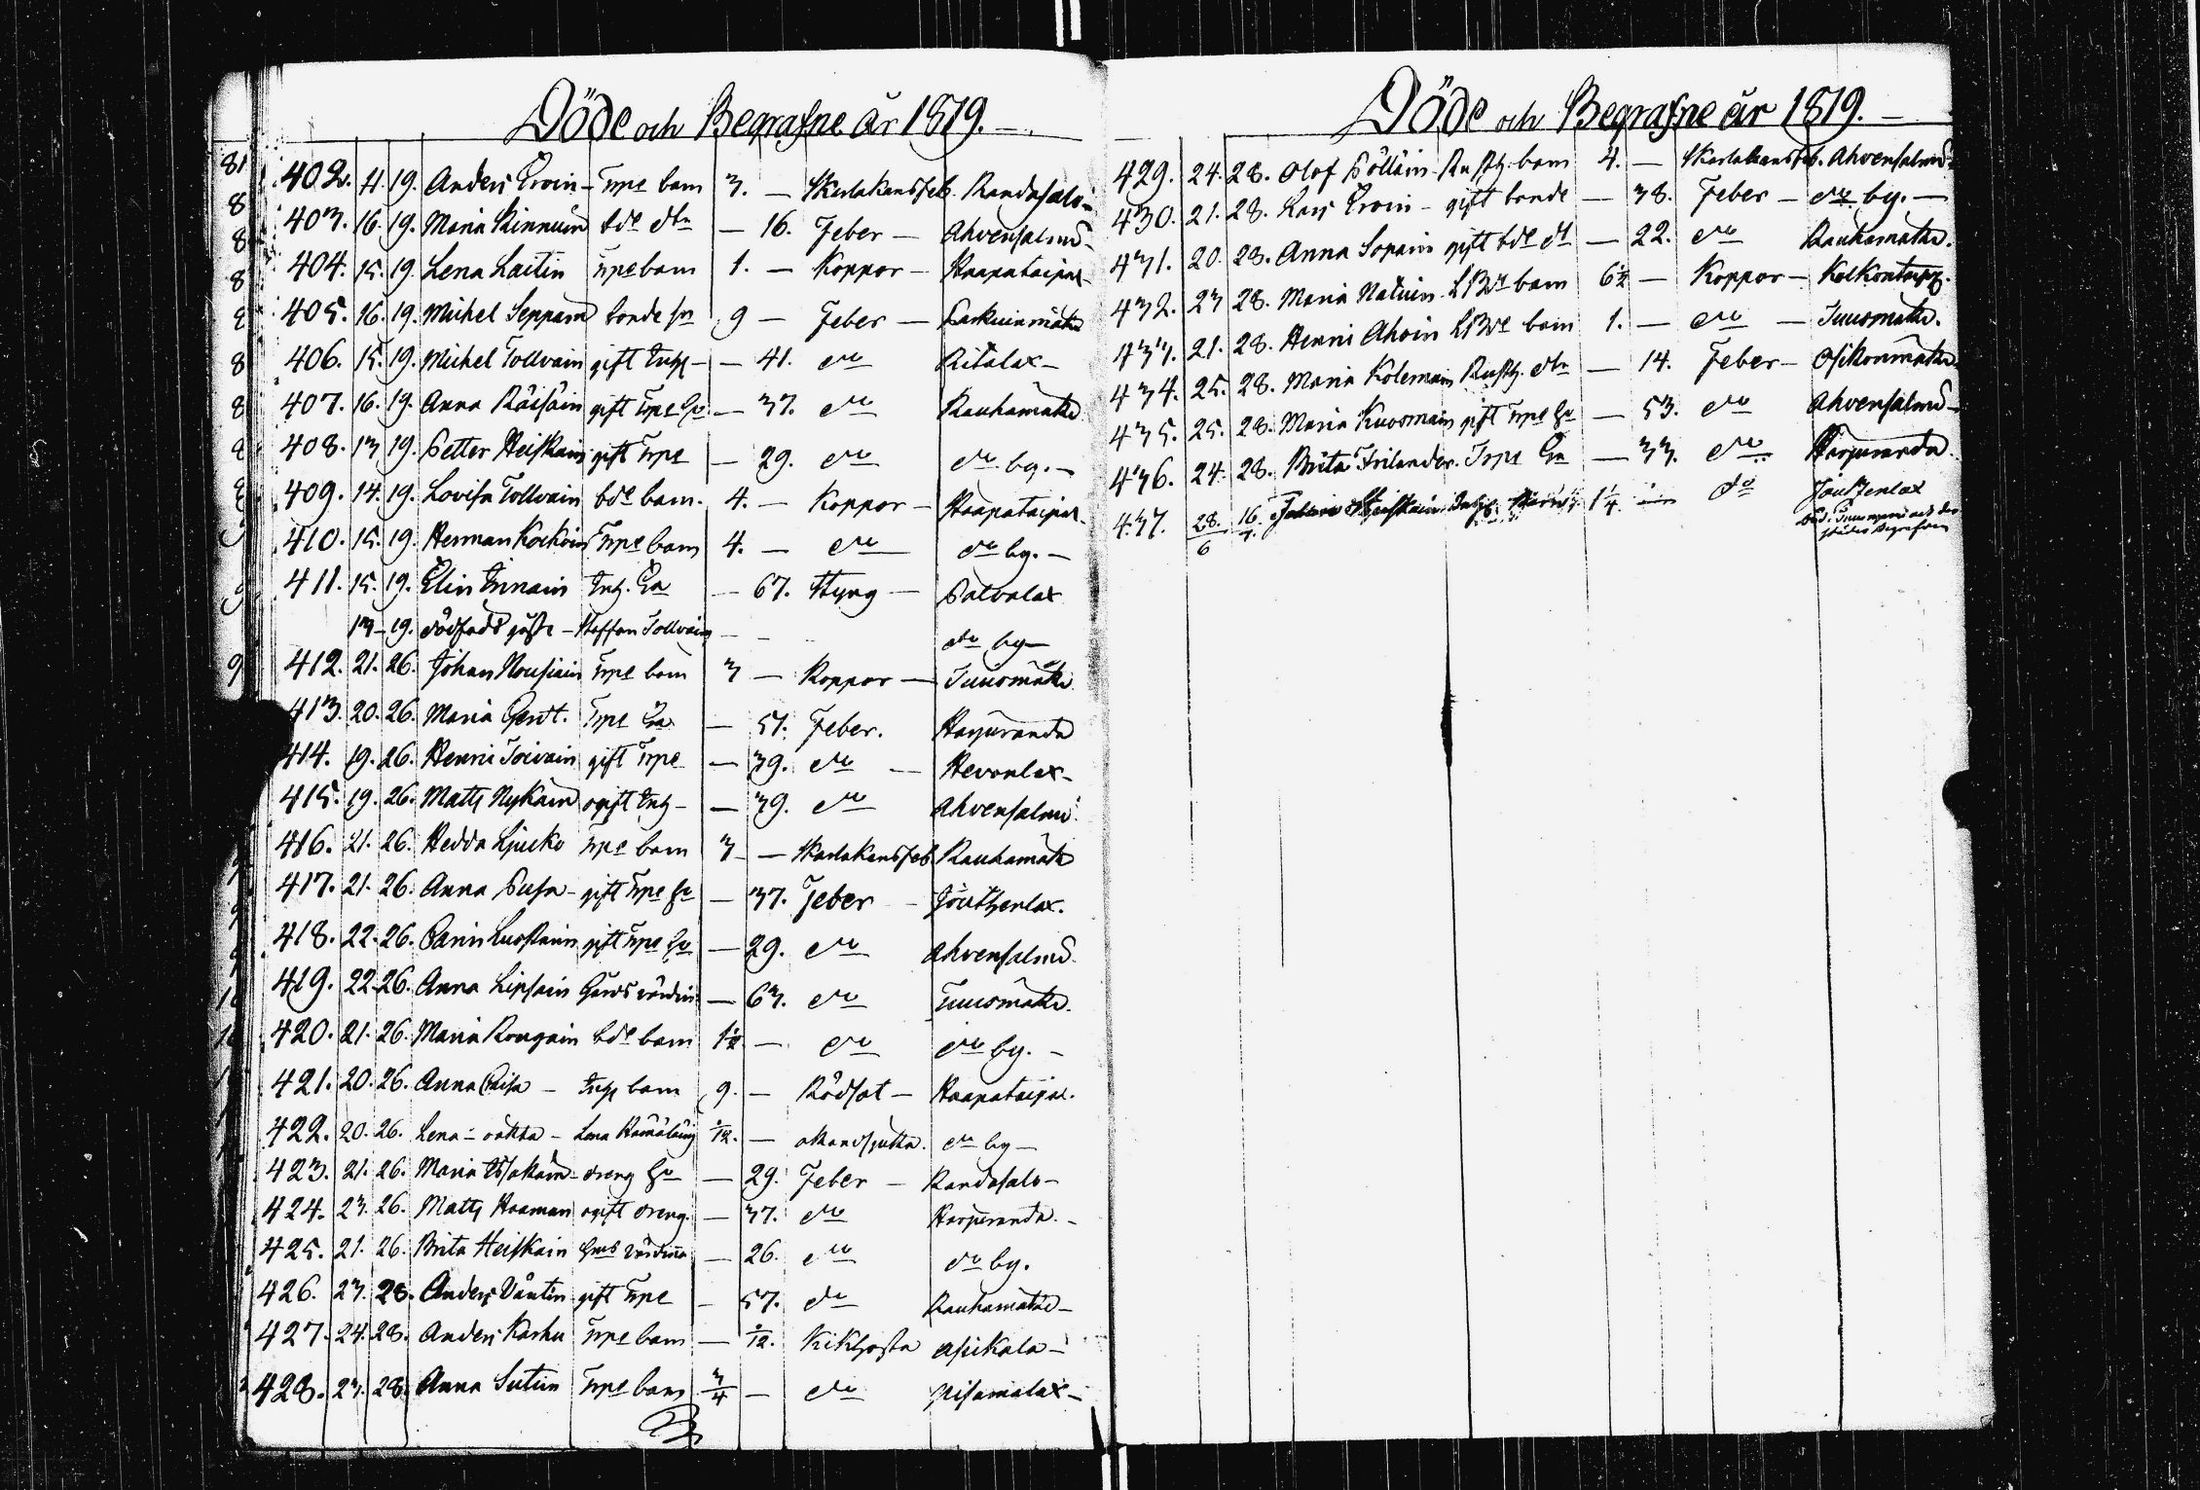 Döde och Begrafne år 1819.
402. 11. 19. Anders Ervin - Trpe barn 3. — Skarlakansfeb. Randasalo -
403. 16. 19. Maria Kinnuin bde dtr — 16. Feber — Ahvensalmi -
404. 15. 19. Lena Laitin Trpe barn 1. — Koppor — Haapataipal -
405. 16. 19. Michel Seppäin bonde sn 9 — Feber —
406. 15. 19. Michel Tollvain gift Inhs — — 41. do Ritulax —
407. 16. 19. Anna Räisäin gift Trpe hu — 37. do Rauhamäki
408. 13 19. Petter Heiskain gift Trpe — 29. do do by. —
409. 14. 19. Lovisa Tollvain bde barn. 4. — Koppor — Haapataipal -
410. 15. 19. Herman Kockoin Trpe barn 4. — do do by. —
411. 15. 19. Elin Innain Inh. Ea — 67. Styng — Potvalax
13 — 19. dödfödt gosse — Staffan Tollvain — — do by —
412. 21. 26. Johan Nousiain Trpe barn 3 — Koppor — Tuusmäki
413. 20. 26. Maria Trpe Ea — 51. Feber. Harjuranda
414. 19. 26. Henric Toivain gift Trpe — 39. do — Hevonlax -
415. 19. 26. Matts Nykäin ogift Inh — — 39. do Ahvensalmi
416. 21. 26. Hedda Ljucko Trpe barn 3 — Skarlakansfeb. Rauhamäki
417. 21. 26. Anna Pusa — gift Trpe hu — 37. Feber — Joutsenlax.
418. 22. 26. Carin Luostain gift Trpe hu — 29. do Ahvensalmi
419. 22. 26. Anna Lipsain Gårds värdin — 63. do Tuusmäki
420. 21. 26. Maria Rongain bde barn 1½ — do do by. —
421. 20. 26. Anna Paisa — Inhs barn 9. — Rödsot — Haapataipal.
422. 20. 26. Lena — oäkta — Lena Hämäläin 1/12. — okand sjukd. do by —
423. 21. 26. Maria dreng hu — 29. Feber — Randasalo -
424. 23. 26. Matts Haaman ogift dreng. — 37. do Harjuranda. -
425. 21. 26. Brita Heiskain Gårds värdina — 26. do do by.
426. 23. 28. Anders Väntin gift Trpe — 57. do Rauhamäki -
427. 24. 28. Anders Karhu Trpe barn — /12. Kikhosta Asikala -
428. 23. 28. Anna Sutin Trpe barn 3/4 — do Pisamalax -
Döde och Begrafne år 1819.
429. 24. 28. Olof Pöllain Rusth. barn 4. — Skarlakansfeb. Ahvensalmi
430. 21. 28. Lars Ervin — gift bonde — 38. Feber — do by. —
431. 20. 28. Anna Sopain gift bde dr — 22. do Rauhamäki.
432. 23 28. Maria Natuin barn 6½ — Koppor — Kolkontaipal.
433. 21. 28. Henric Ahoin barn 1. — do — Tuusmäki.
434. 25. 28. Maria Kolemain Rusth. dtr — 14. Feber — Osikonmäki
435. 25. 28. Maria Kuosmain gift Trpe hu — 53. do Ahvensalmi -
436. 24. 28. Brita Frilander. Trpe Ea — 33. do Harjuranda.
437. 28./6 16./7. Heiskain Inhs barn 1¼ — do Joutsenlax